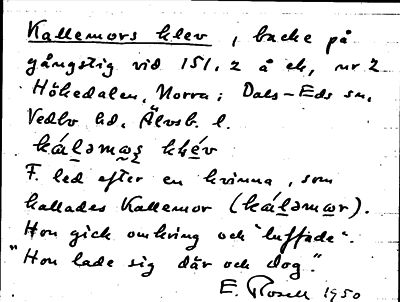 Kallemors klev, backe på
gångstig vid 151.2 å ek, nr 2
Hökedalen, Norra; Dals-Eds sn,
Vedbo hd, Älvsb. l.
F. led efter en kvinna, som
kallades Kallemor (káḻəmω̱r).
Hon gick omkring och "luffade".
"Hon lade sig där och dog."
E. Rosell 1950